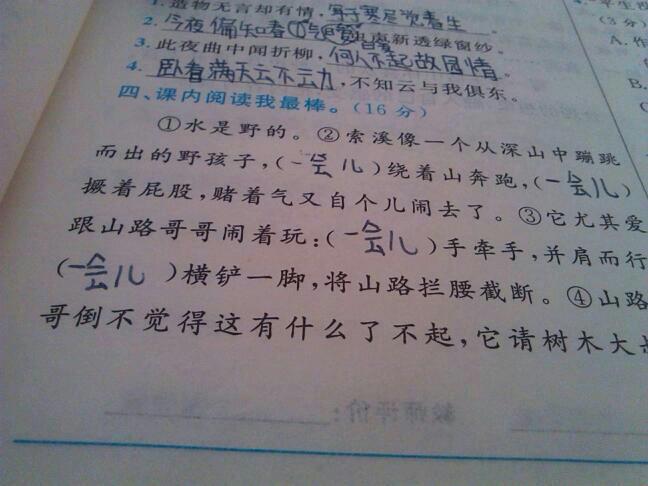 1. 造物无言却有情,每于寒尽觉春生。
2. 今夜偏知春气暖,虫声新透绿窗纱。
3. 此夜曲中闻折柳,何人不起故园情。
4. 卧看满天云不动,不知云与我俱东。
四、课内阅读我最棒。(16 分)
①水是野的。②索溪像一个从深山中蹦跳
而出的野孩子,(一会儿)绕着山奔跑,(一会儿)
撅着屁股,赌着气又自个儿闹去了。③它尤其爱
跟山路哥哥闹着玩:(一会儿)手牵手,并肩而行
(一会儿)横铲一脚,将山路拦腰截断。④山路
哥倒不觉得这有什么了不起,它请树木大
(3 分)
A. 作
B.
教师评价: